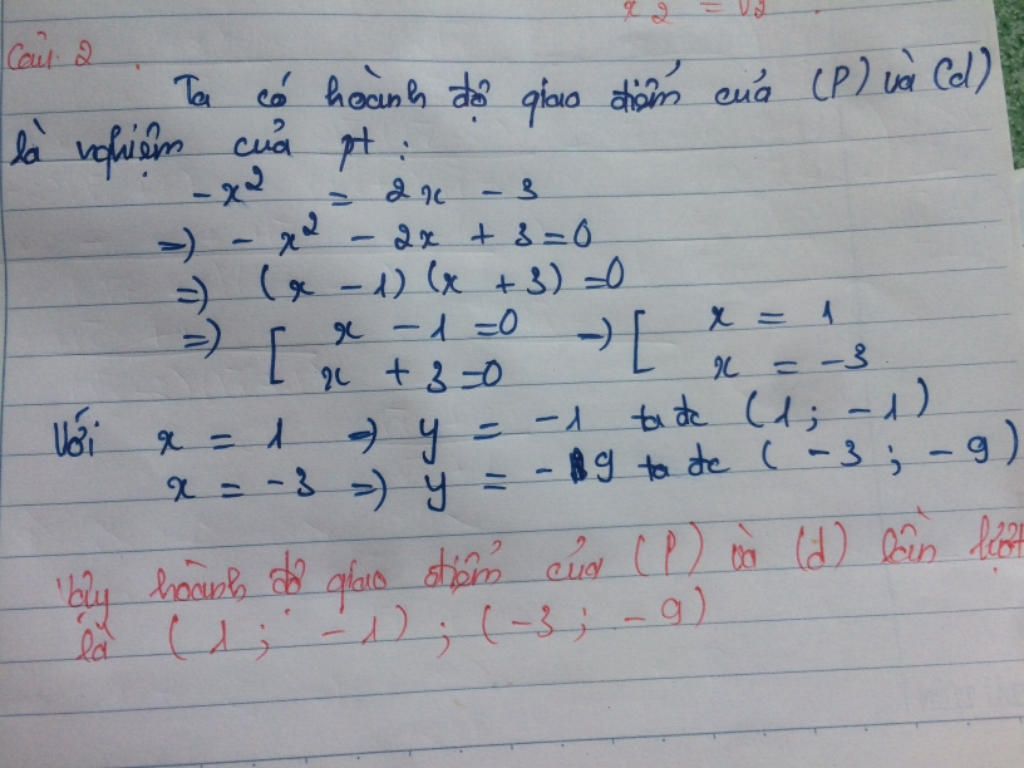 x2 = √2
Câu 2.
Ta có hoành độ giao điểm của (P) và (d)
là nghiệm của pt :
-x² = 2x - 3
=) - x² - 2x + 3 = 0
=) (x - 1) (x + 3) = 0
=) [ x - 1 = 0 =) [ x = 1
x + 3 = 0 x = -3
Với x = 1 =) y = -1 ta đc (1 ; -1)
x = -3 =) y = -9 ta đc ( -3 ; -9 )
Vậy hoành độ giao điểm của (P) và (d) lần lượt
là ( 1 ; -1 ) ; ( -3 ; -9 )